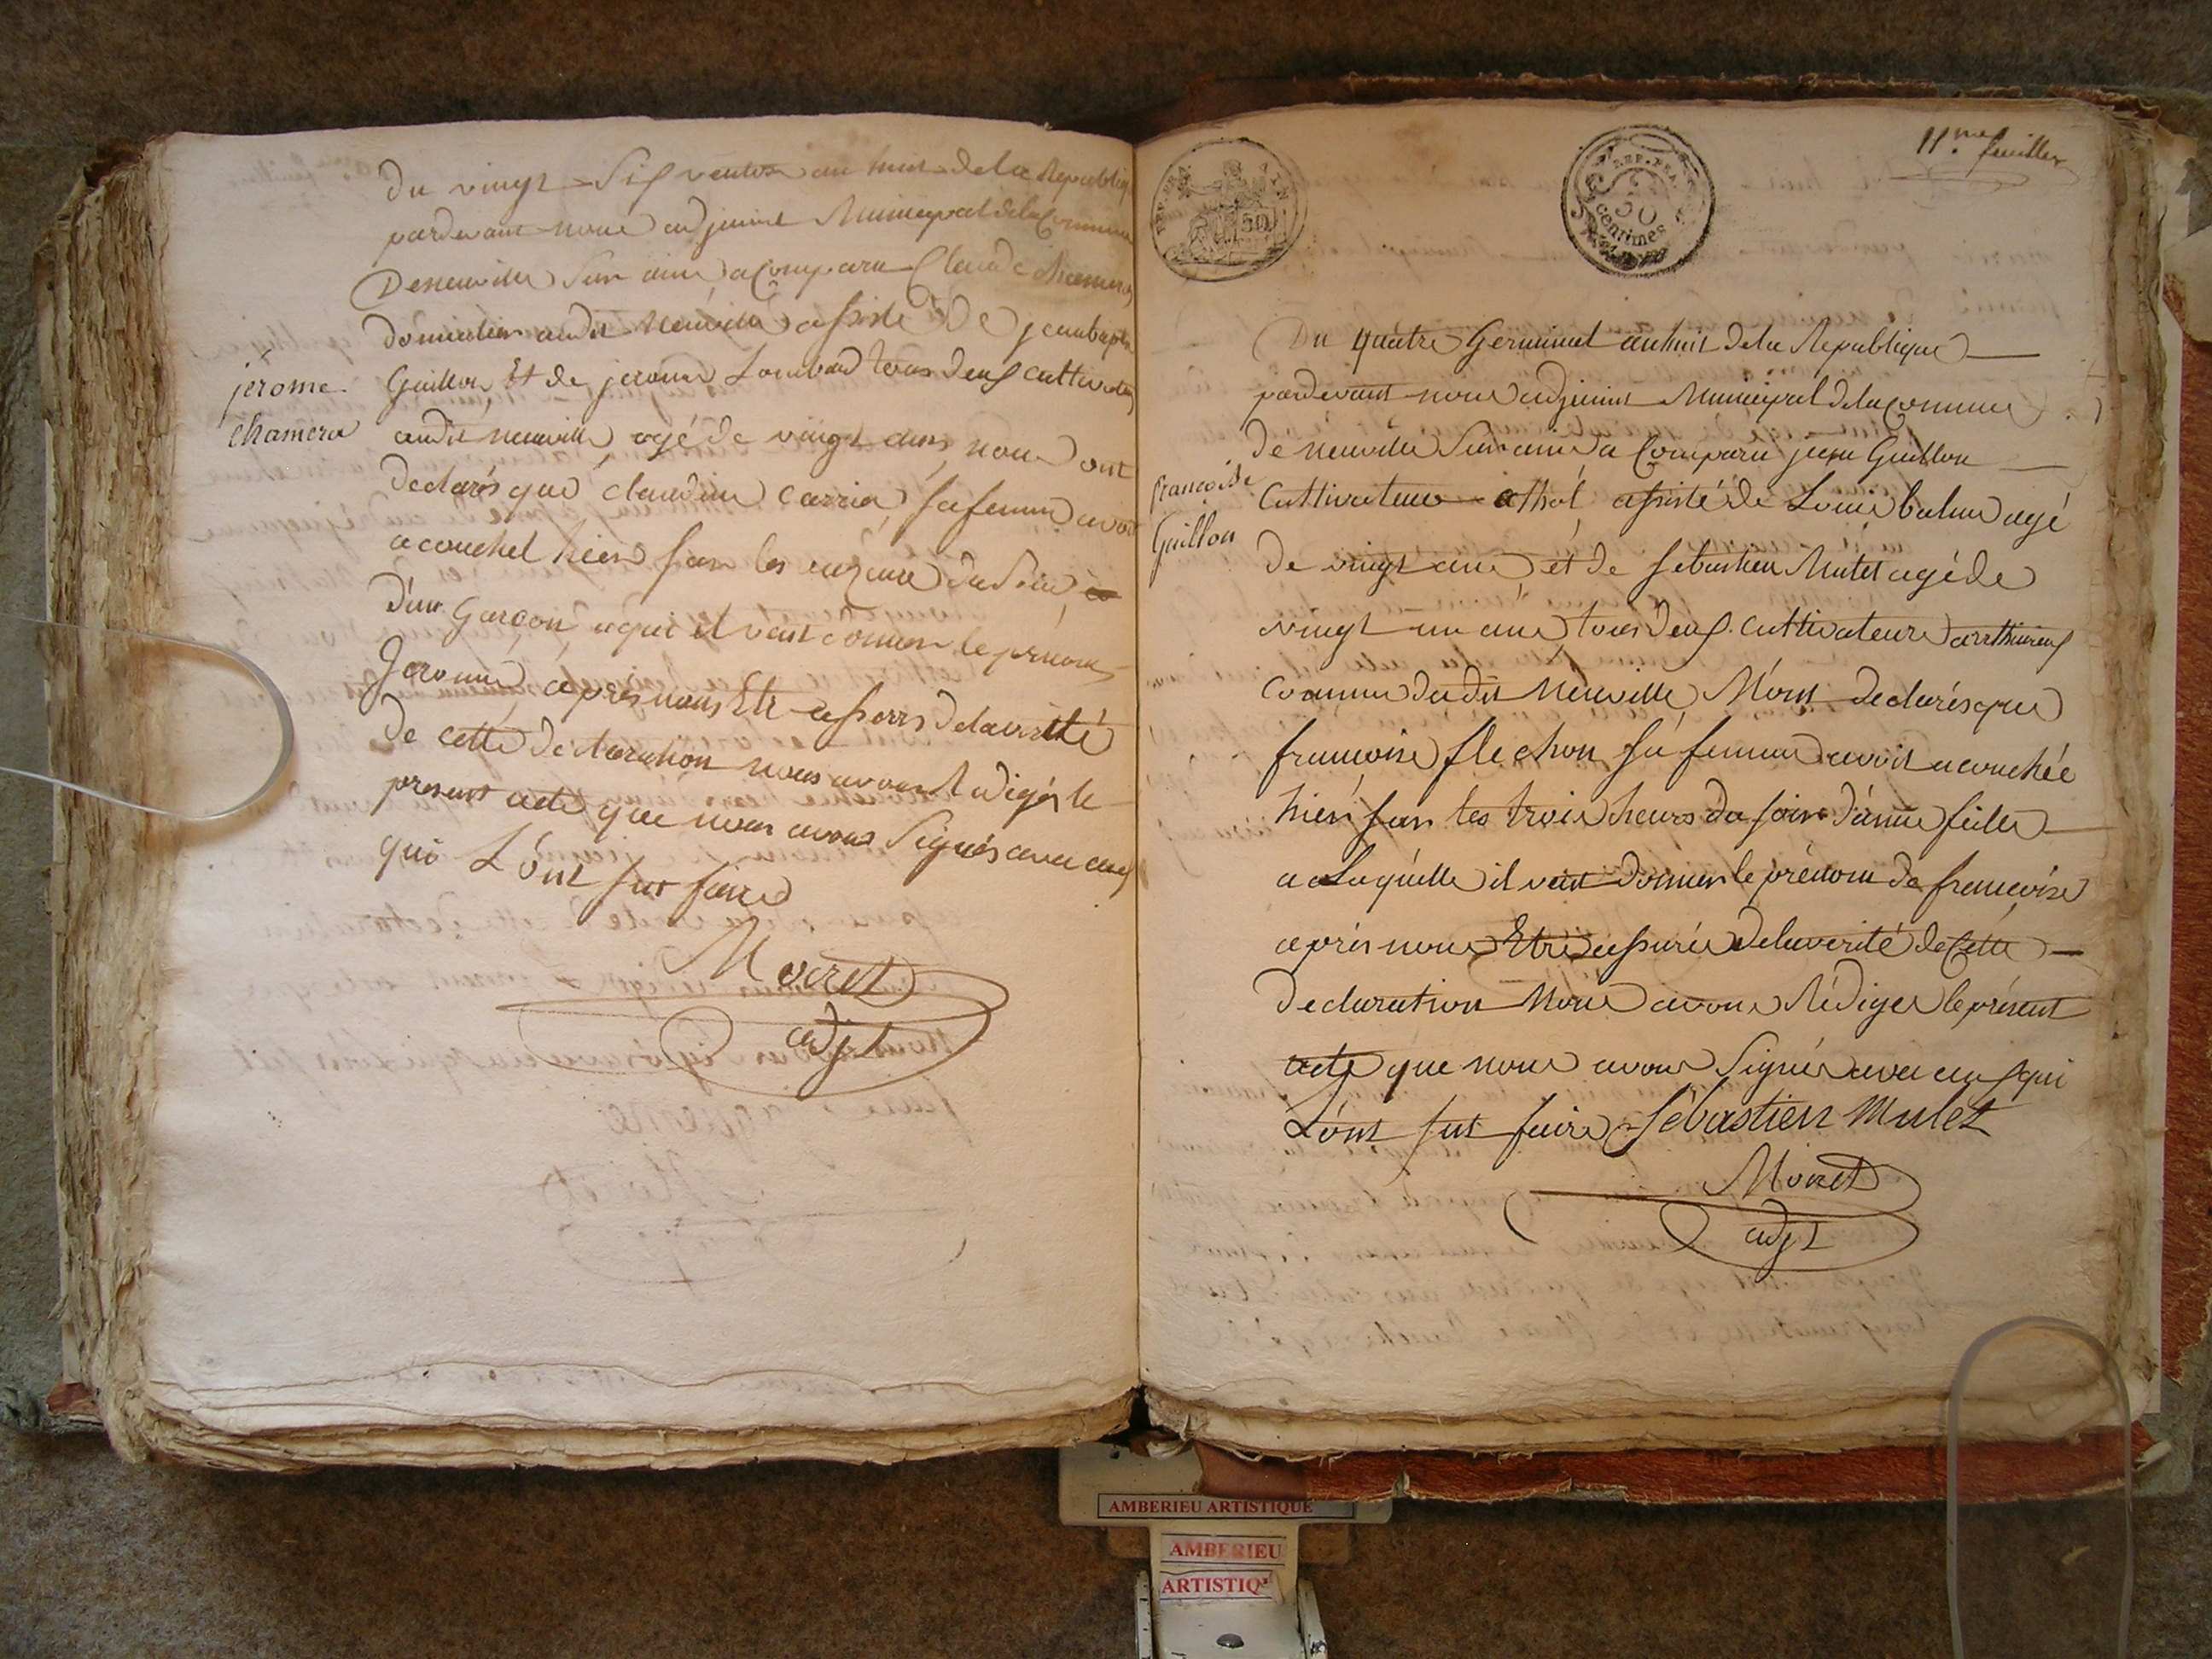 jérome
chamera
du vingt Six ventose an huit de la Republiq
pardevant nous adjoint Municipal de la Commune
De neuville Sur ain a Comparu Claude Chamera
domicilier audit neuville assisté de jean baptis
Guillon, Et de jerome Lombard tous deux cultivate
audit neuville agé de vingt ans, nous ont
declarés que claudine Carria sa femme avoit
acouchel hier sur les onze heure du Soir
d'un Garçon aqui il veut donner le prénom
Jerome après nous Etre assurrs de la verité
de cette declaration nous avons Rédigés le
present acte que nous avons Signés avec eux
qui L'ont sut faire
Moret
adjt
REP. FRA. AIN
50
REP. FRA.
50
centimes
11.me feuillet
françoise
Guillon
Du quatre Germinal an huit De la Republique
pardevant nous adjoint Municipal de la Commune
de neuville Sur ain a Comparu jean Guillon
Cultivateur a thol assisté de Louis balme agé
de vingt ans et de sebastien Mulet agé de
vingt un ans tous deux cultivateurs a
Commune du dit Neuville M'ont declarés que
françoise flechon sa femme avoit acouchée
hier sur les trois heurs du soir d'une fille
a Laquelle il veut donner le prénom de françoise
après nous Etre assurés de la verité de Cette
declaration Nous avons Rédiger le présent
acte que nous avons Signés avec eux qui
L'ont sut faire Sébastien Mulet
Moret
adjt
AMBERIEU ARTISTIQUE
AMBERIEU
ARTISTIQ